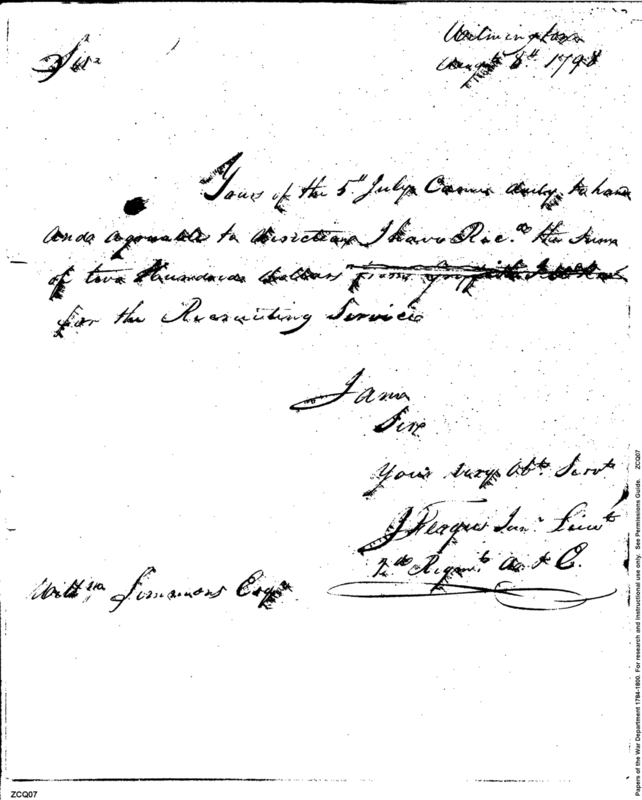 Wilmington
Augt 8th 1798
Sir
Yours of the 5th July Came duly to hand
and agreeable to direction I have Recd the Sum
of two Hundred dollars from you
for the Recruiting Service
I am
Sir
Your very Obt Servt
Junr Lieut
2nd Regmt A & E.
Willm Simmons Esqr
ZCQ07
Papers of the War Department 1784-1800. For research and instructional use only. See Permissions Guide. ZCQ07